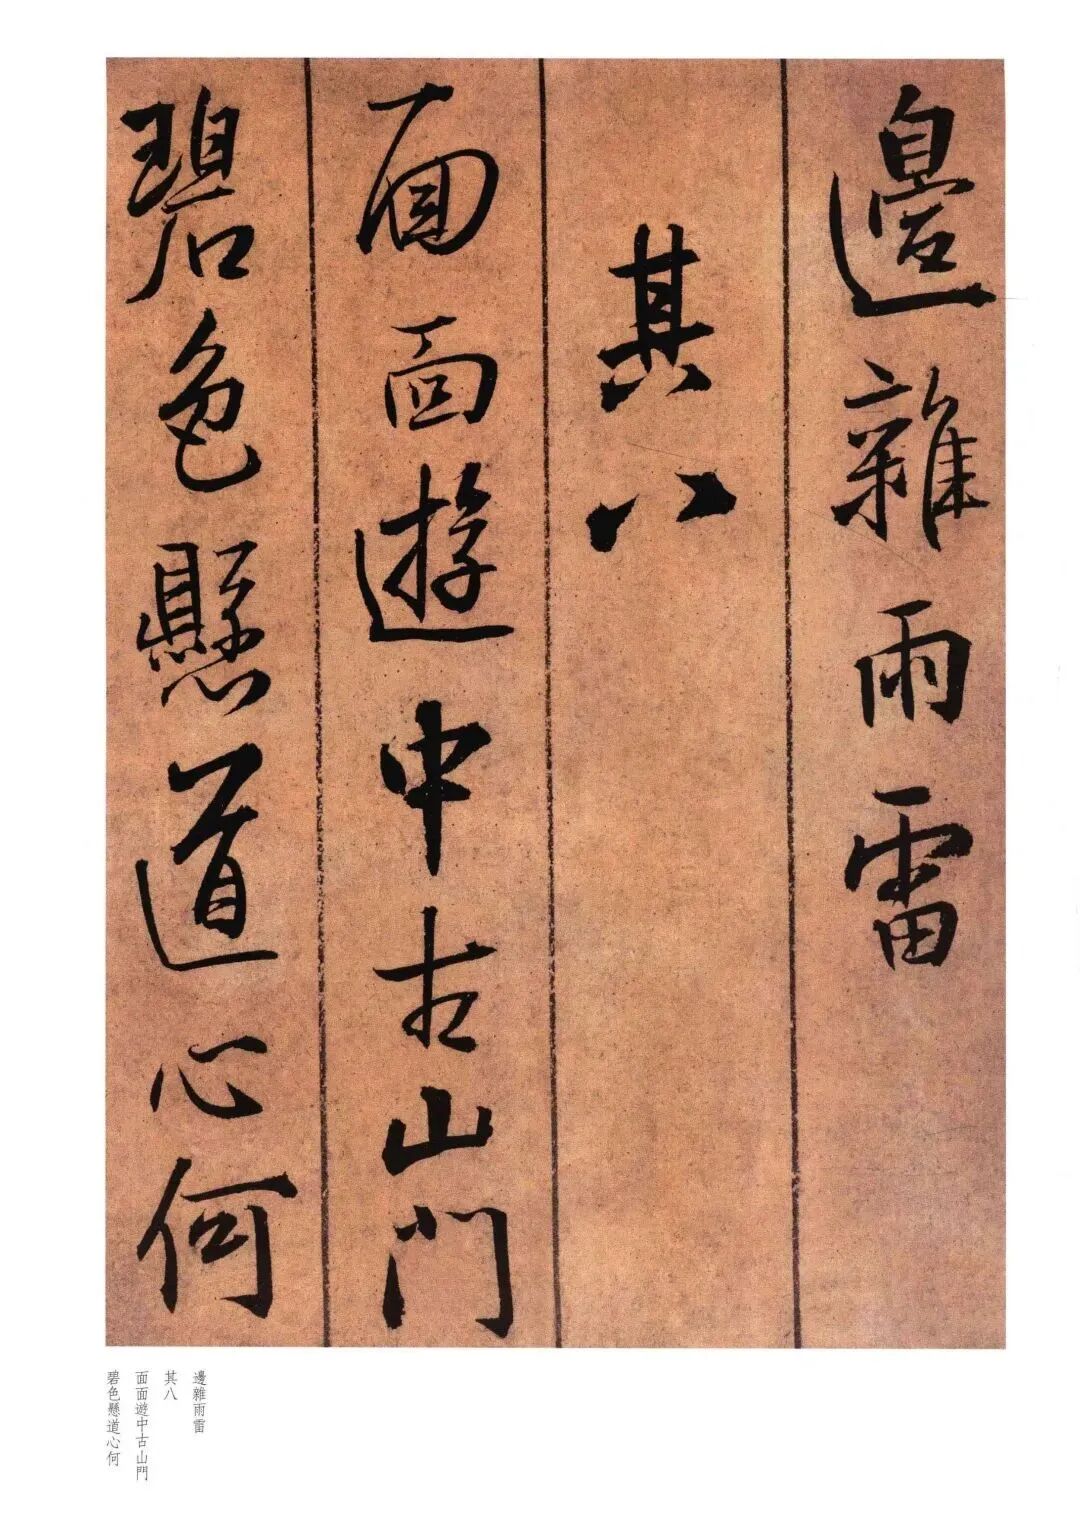 邊雜雨雷
其八
面面遊中古山門
碧色懸道心何
邊雜雨雷
其八
面面遊中古山門
碧色懸道心何